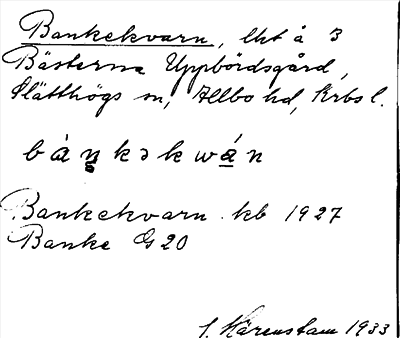 Bankekvarn, lht å 3
Bästerna Uppbördsgård,
Slätthögs sn, Allbo hd, Krbs l.
bàŋkəkwán
Bankekvarn kb 1927
Banke G 20
S. Härenstam 1933